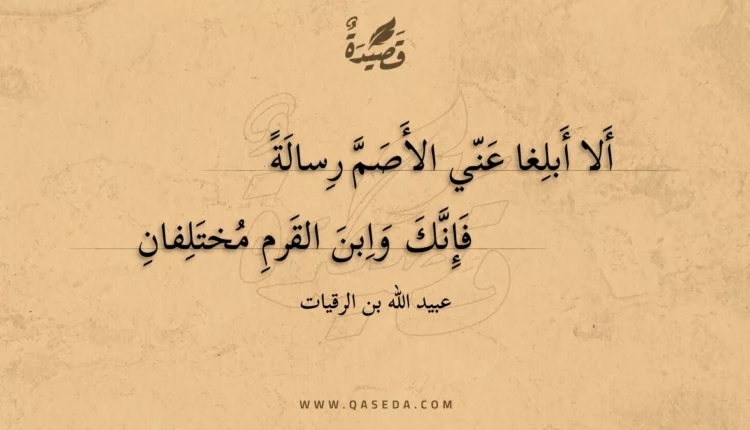 قَصِيْدَةٌ
أَلا أَبلِغا عَنّي الأَصَمَّ رِسالَةً
فَإِنَّكَ وَاِبنَ القَرمِ مُختَلِفانِ
عبيد الله بن الرقيات
WWW.QASEDA.COM